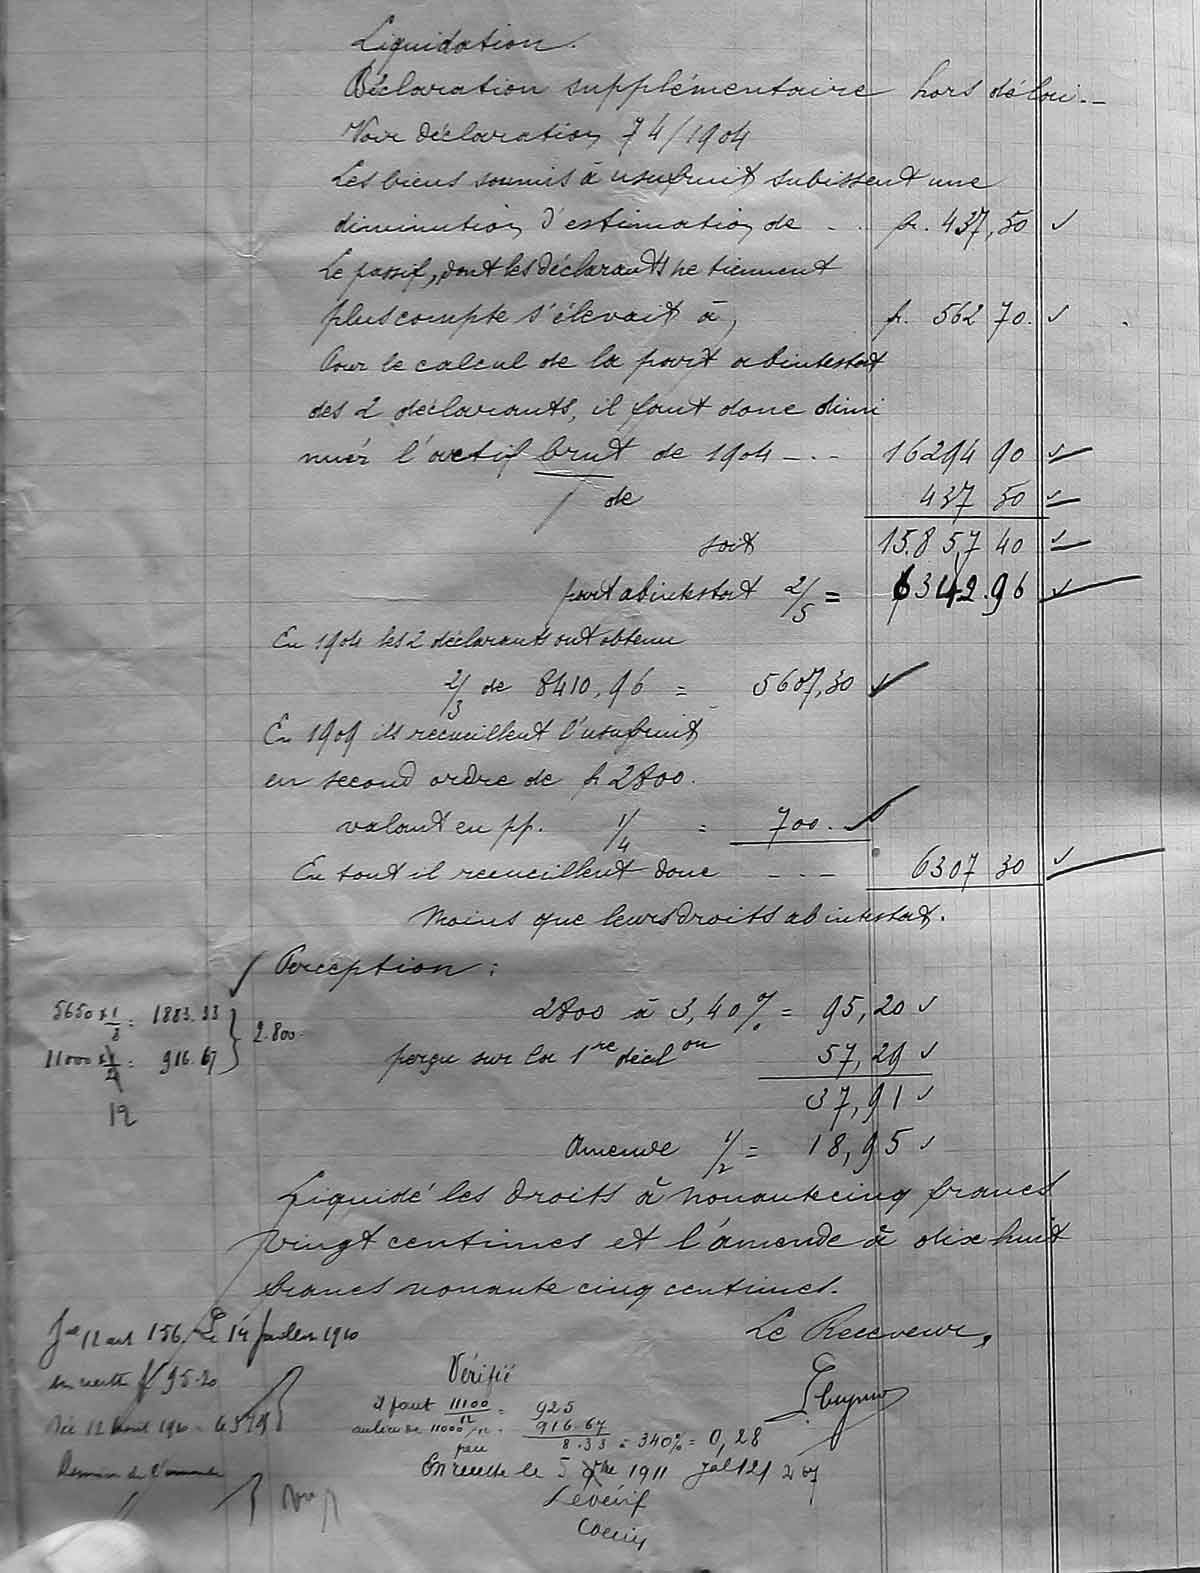 Liquidation.
Déclaration supplémentaire hors délai. -
Voir déclaration 74/1904
Les biens soumis à usufruit subissent une
diminution d'estimation de - . fr. 437,50
Le passif, dont les déclarants ne tiennent
plus compte s'élevait à, fr. 562 70.
Pour le calcul de la part abintestat
des 2 déclarants, il faut donc dimi
nuer l'actif brut de 1904 - - . 16294 90
de 437 50
soit 15.857 40
part abintestat 2/5 = 6342.96
En 1904 les 2 déclarants ont obtenu
2/3 de 8410,96 = 5607,30
En 1909 ils recueillent l'usufruit
en second ordre de fr 2800.
valant en pp. 1/4 = 700.
En tout il recueillent donc - - - 6307 30
Moins que leurs droits abintestat.
Perception :
5650 x 1/3 = 1883.33
11000 x 1/12 = 916.67
} 2.800.
2800 à 3,40 % = 95,20
perçu sur la 1re décl on 57,29
37,91
Amende 1/2 = 18,95
Liquidé les droits à nonante cinq francs
vingt centimes et l'amende à dix huit
francs nonante cinq centimes.
Le Receveur,
Jal 12 art 156. Le 14 1910
en recette f 95.20
12 1910
Vérifié
il faut 11100/12 = 925
au lieu de 11000/12 = 916.67
8.33 = 340% = 0,28
En recette le 5 1911 Jal 121 2 67
Le vérif